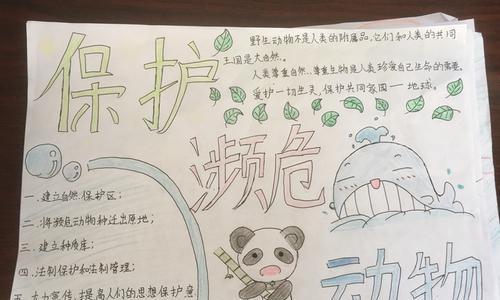 保护
野生动物不是人类的附属品,它们和人类的共同
王国是大自然。
人类尊重自然、尊重生物是人类珍爱自己生命的需要。
爱护一切生灵,保护共同家园——地球。
濒危
动物
一、建立自然保护区;
二、将濒危动物种迁出原地;
三、建立种质库;
四、法制保护和法制管理;
大力宣传,提高人们的思想保护意